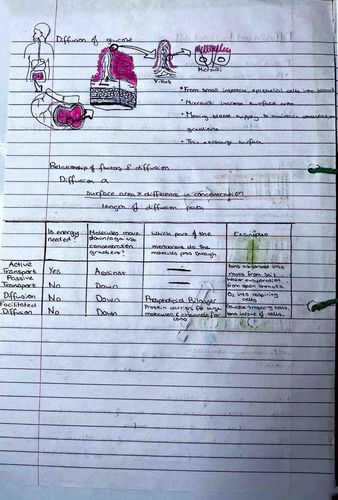 Diffusion of glucose
Villus
Microvilli
• From small intestine epithelial cells into blood
• Microvilli increase surface area
• Moving blood supply to maintain concentration
gradient
• Thin exchange surface
Relationship of factors & diffusion
Diffusion α
Surface area × difference in concentration
length of diffusion path
Is energy needed?
Molecules move down/against concentration gradient?
Which part of the membrane do the molecules pass through
Examples
Active Transport Yes Against — Ions absorbed into roots from soil
Passive Transport No Down — Water evaporation from open stomata
Diffusion No Down Phospholipid Bilayer O₂ into respiring cells
Facilitated Diffusion No Down Protein carriers for large molecules & channels for ions Glucose cells, ions cells.